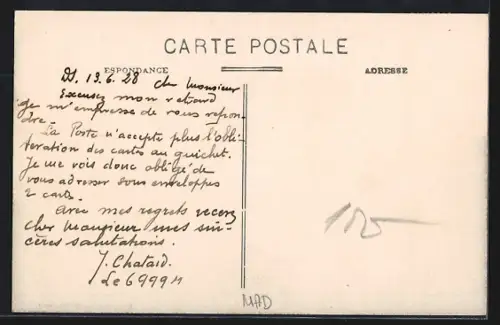 CARTE POSTALE
ESPONDANCE
ADRESSE
13.6.28 Cher Monsieur
Excusez mon retard
je m'empresse de vous repon-
dre.
La Poste n'accepte plus l'obli-
teration des cartes au guichet.
Je me vois donc obligé de
vous adresser sous enveloppes
2 cartes
Avec mes regrets recevez
cher Monsieur mes sin-
cères salutations.
J. Chatard.
Le 6999 M
MAD